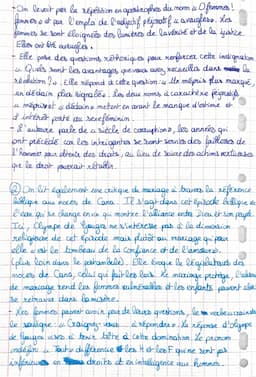 - On devoit par la répétition en apostrophes du nom « Ô femmes !
femmes » et par l'emploi de l'adjectif péjoratif « aveugles ». Les
femmes se sont éloignées des lumières de la vérité et de la justice.
Elles ont été aveugles.
- Elle pose des questions rhétoriques pour renforcer cette indignation
« Quels sont les avantages que vous avez recueillis dans la
révolution ? » Elle répond à cette question « Un mépris plus marqué,
un dédain plus signalé. Les deux noms à caractère péjoratif
« mépris » et « dédain » mettent en avant le manque d'estime et
d'intérêt porté au sexe féminin.
- L'auteure parle de « siècle de corruption », les années qui
ont précédé car les intrigantes se sont servies des faiblesses de
l'homme pour obtenir des droits, au lieu de suivre des actions
que le droit pourrait
② On lit également une critique du mariage à travers la référence
biblique aux noces de Cana. Il s'agit dans cet épisode biblique de
l'eau qui se change en vin qui montre l'alliance entre Dieu et son peuple.
Ici, Olympe de Gouges ne s'intéresse pas à la dimension
religieuse de cet épisode mais plutôt au mariage qui pour
elle « est le tombeau de la confiance et de l'amour ».
(plus loin dans le postambule). Elle évoque le législateur des
noces de Cana, celui qui fait les lois. Le mariage protège, l'absence
de mariage rend les femmes vulnérables et les enfants peuvent alors
se retrouver dans la misère.
- Les femmes peuvent avoir peur de leurs questions, le
le souligne : « Craignez-vous » « répondre ». La réponse d'Olympe
de Gouges vise à tenir tête à cette domination. Le pronom
indéfini « Tout » différence les H et les F qui ne sont pas
inférieures en droits et en intelligence aux hommes.